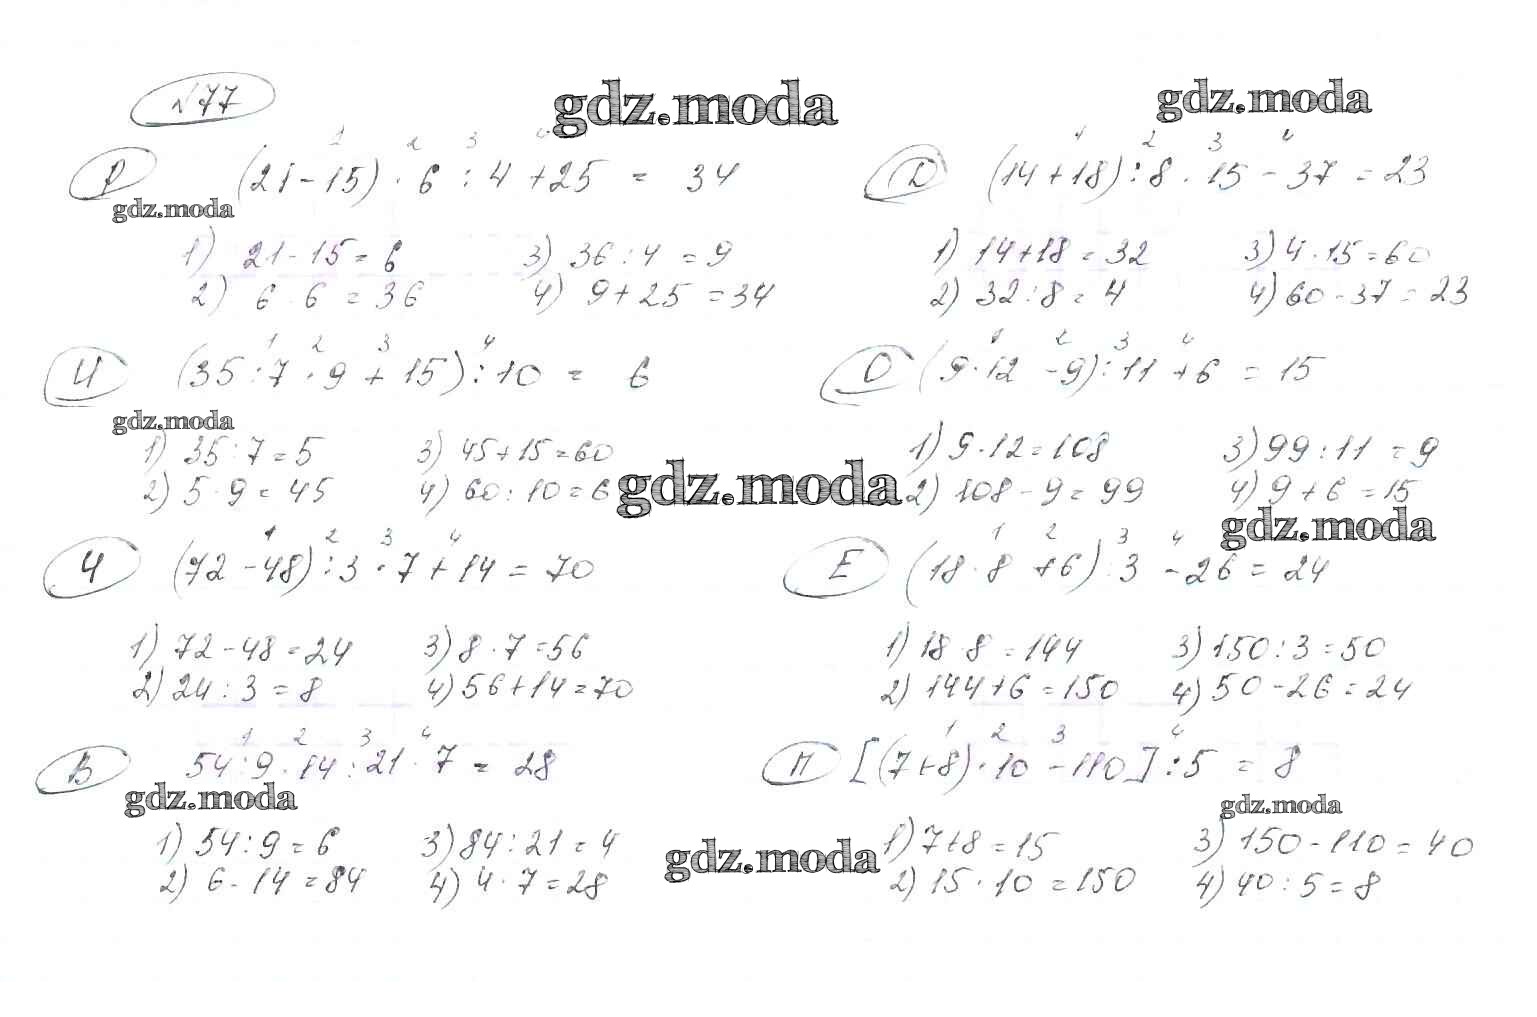 №77
gdz.moda
gdz.moda
1 2 3 4
Р (21-15)·6:4+25 = 34
gdz.moda
1) 21-15=6 3) 36:4=9
2) 6·6=36 4) 9+25=34
1 2 3 4
И (35:7·9+15):10 = 6
gdz.moda
1) 35:7=5 3) 45+15=60
2) 5·9=45 4) 60:10=6
gdz.moda
1 2 3 4
Ч (72-48):3·7+14=70
1) 72-48=24 3) 8·7=56
2) 24:3=8 4) 56+14=70
1 2 3 4
В 54:9·14:21·7=28
gdz.moda
1) 54:9=6 3) 84:21=4
2) 6·14=84 4) 4·7=28
gdz.moda
1 2 3 4
(14+18):8·15-37=23
1) 14+18=32 3) 4·15=60
2) 32:8=4 4) 60-37=23
1 2 3 4
О (9·12-9):11+6=15
1) 9·12=108 3) 99:11=9
2) 108-9=99 4) 9+6=15
gdz.moda
1 2 3 4
Е (18·8+6):3-26=24
1) 18·8=144 3) 150:3=50
2) 144+6=150 4) 50-26=24
1 2 3 4
[(7+8)·10-110]:5=8
gdz.moda
1) 7+8=15 3) 150-110=40
2) 15·10=150 4) 40:5=8